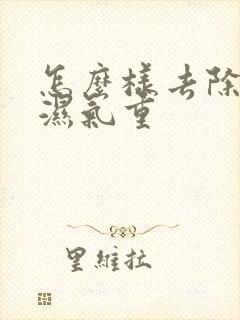 怎麼樣去除
濕氣重
里維拉